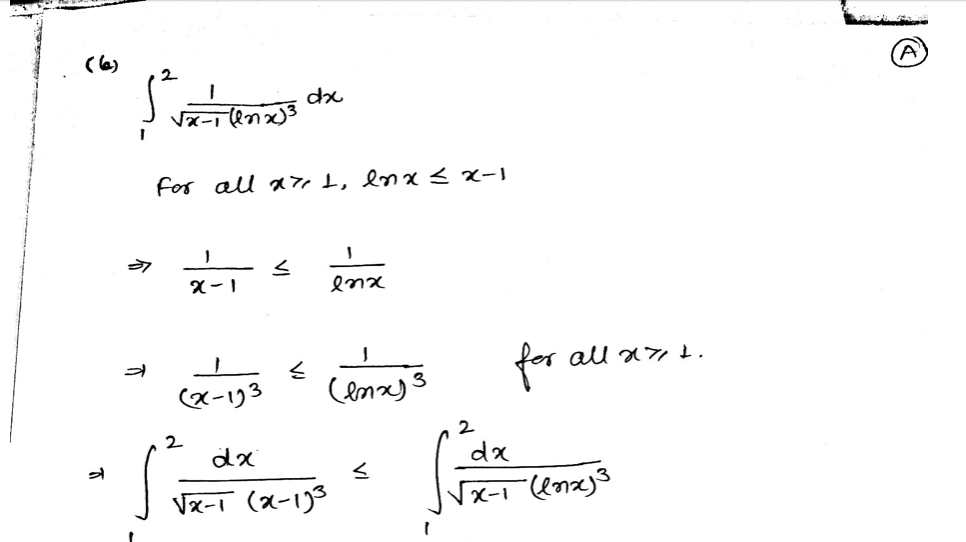 (b) Ⓐ
∫₁² 1/(√(x-1) (ln x)³) dx
For all x ≥ 1, ln x ≤ x-1
⇒ 1/(x-1) ≤ 1/(ln x)
⇒ 1/(x-1)³ ≤ 1/(ln x)³ for all x ≥ 1.
⇒ ∫₁² dx/(√(x-1) (x-1)³) ≤ ∫₁² dx/(√(x-1) (ln x)³)